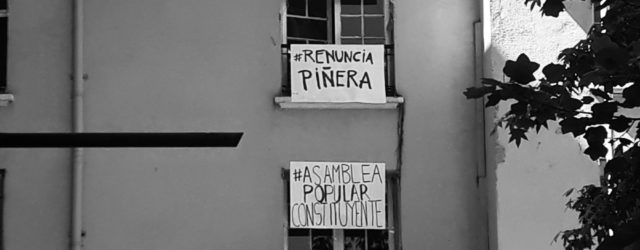 #RENUNCIA
PIÑERA
#ASAMBLEA
POPULAR
CONSTITUYENTE